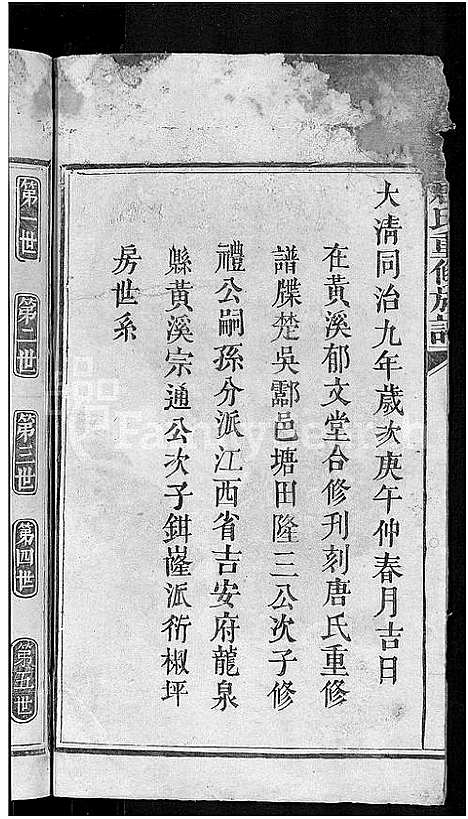 氏重修族譜
大清同治九年歲次庚午仲春月吉日
在黃溪郁文堂合修刊刻唐氏重修
譜牒楚吳酃邑塘田隆三公次子修
禮公嗣孫分派江西省吉安府龍泉
縣黃溪宗通公次子鉗嶐派衍椒坪
房世系
第一世
第二世
第三世
第四世
第五世